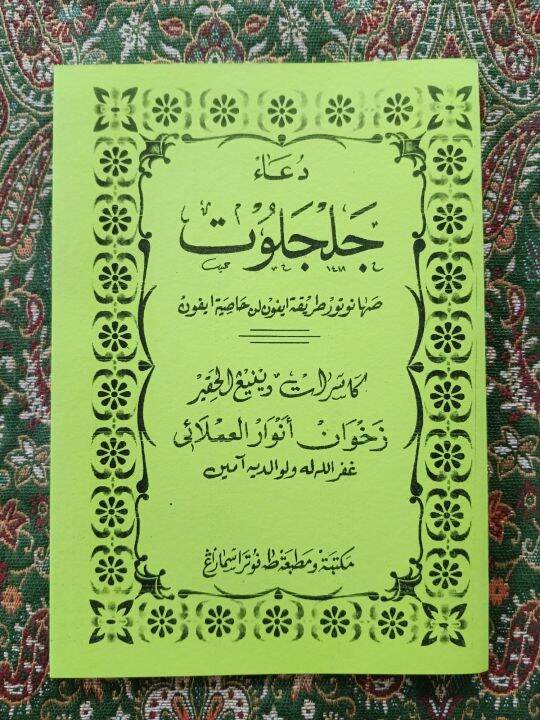 دُعَاءْ
جَلْجَلُوْتْ
١٤١١
صها نوتور طريقة ايفون لن خاصية ايفون
كاسرات دينيڠ الحقير
زَخْوَانْ أَنْوَارْ العملائي
غفر الله له ولوالديه آمين
مكتبة ومطبعة طه فوترا سماراڠ